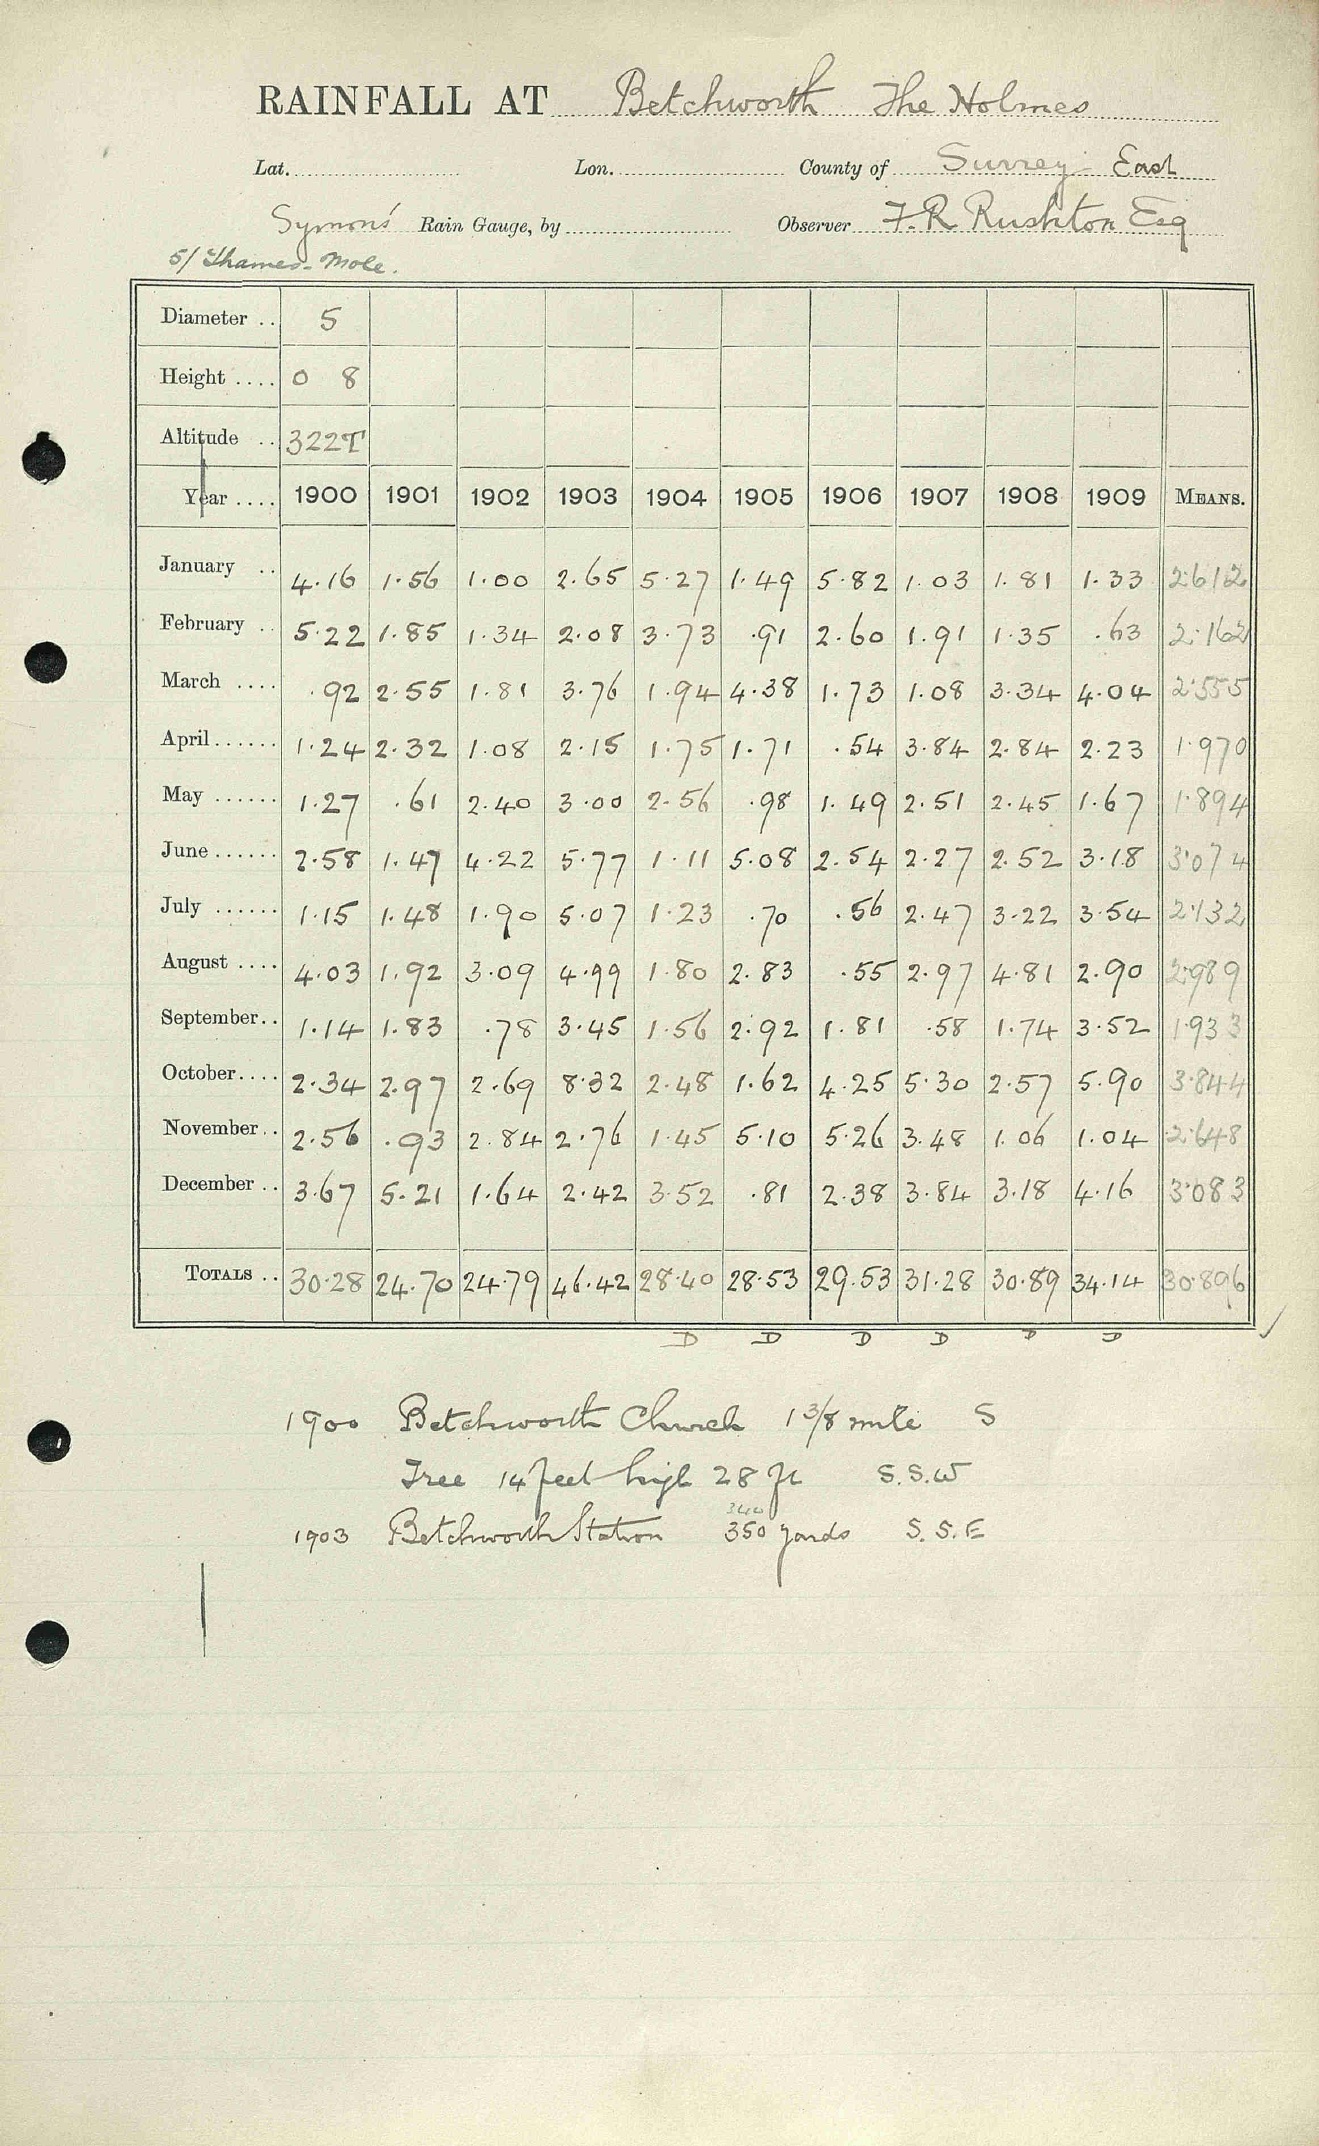 RAINFALL AT Betchworth The Holmes
Lat. Lon. County of Surrey East
Symons' Rain Gauge, by Observer F. R Rushton Esq
5/ Thames - Mole.
Diameter .. 5
Height .... 0 8
Altitude .. 322T
Year .... 1900 1901 1902 1903 1904 1905 1906 1907 1908 1909 MEANS.
January .. 4.16 1.56 1.00 2.65 5.27 1.49 5.82 1.03 1.81 1.33 2.612
February .. 5.22 1.85 1.34 2.08 3.73 .91 2.60 1.91 1.35 .63 2.162
March .... .92 2.55 1.81 3.76 1.94 4.38 1.73 1.08 3.34 4.04 2.555
April ...... 1.24 2.32 1.08 2.15 1.75 1.71 .54 3.84 2.84 2.23 1.970
May ...... 1.27 .61 2.40 3.00 2.56 .98 1.49 2.51 2.45 1.67 1.894
June ...... 2.58 1.47 4.22 5.77 1.11 5.08 2.54 2.27 2.52 3.18 3.074
July ...... 1.15 1.48 1.90 5.07 1.23 .70 .56 2.47 3.22 3.54 2.132
August .... 4.03 1.92 3.09 4.99 1.80 2.83 .55 2.97 4.81 2.90 2.989
September .. 1.14 1.83 .78 3.45 1.56 2.92 1.81 .58 1.74 3.52 1.933
October .... 2.34 2.97 2.69 8.32 2.48 1.62 4.25 5.30 2.57 5.90 3.844
November .. 2.56 .93 2.84 2.76 1.45 5.10 5.26 3.48 1.06 1.04 2.648
December .. 3.67 5.21 1.64 2.42 3.52 .81 2.38 3.84 3.18 4.16 3.083
TOTALS .. 30.28 24.70 24.79 46.42 28.40 28.53 29.53 31.28 30.89 34.14 30.896
D D D D D D
1900 Betchworth Church 1 3/8 mile S
Tree 14 feet high 28 ft S.S.W
1903 Betchworth Station 350 yards S.S.E